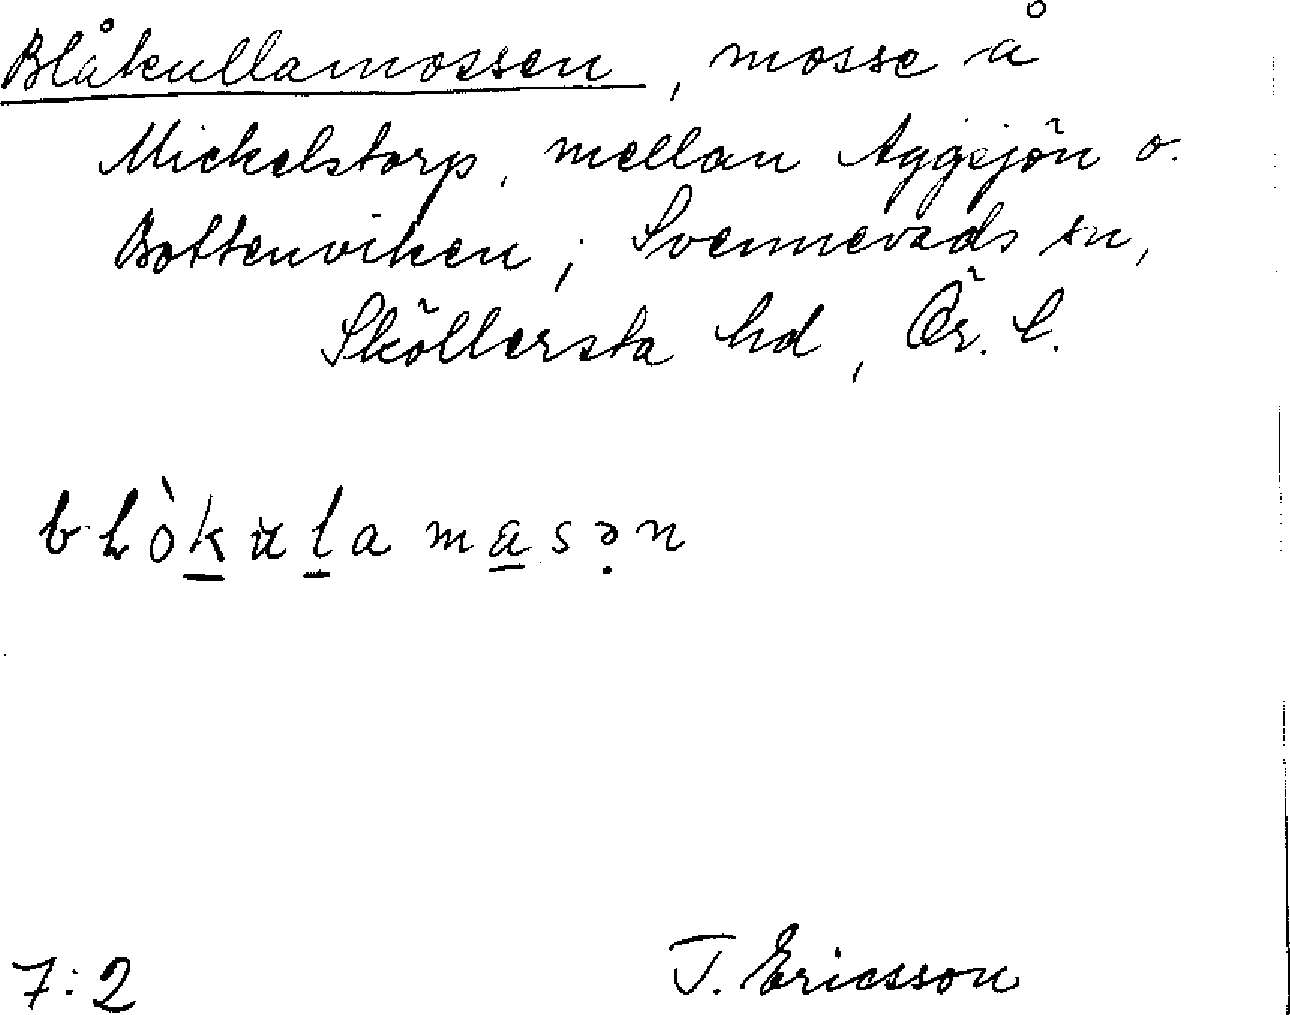 Blåkullamossen, mosse å
Mickelstorp, mellan Aggsjön o.
Bottenviken; Svennevads sn,
Sköllersta hd, Ör. l.
blòku̇lamasən
7:2
T. Ericsson